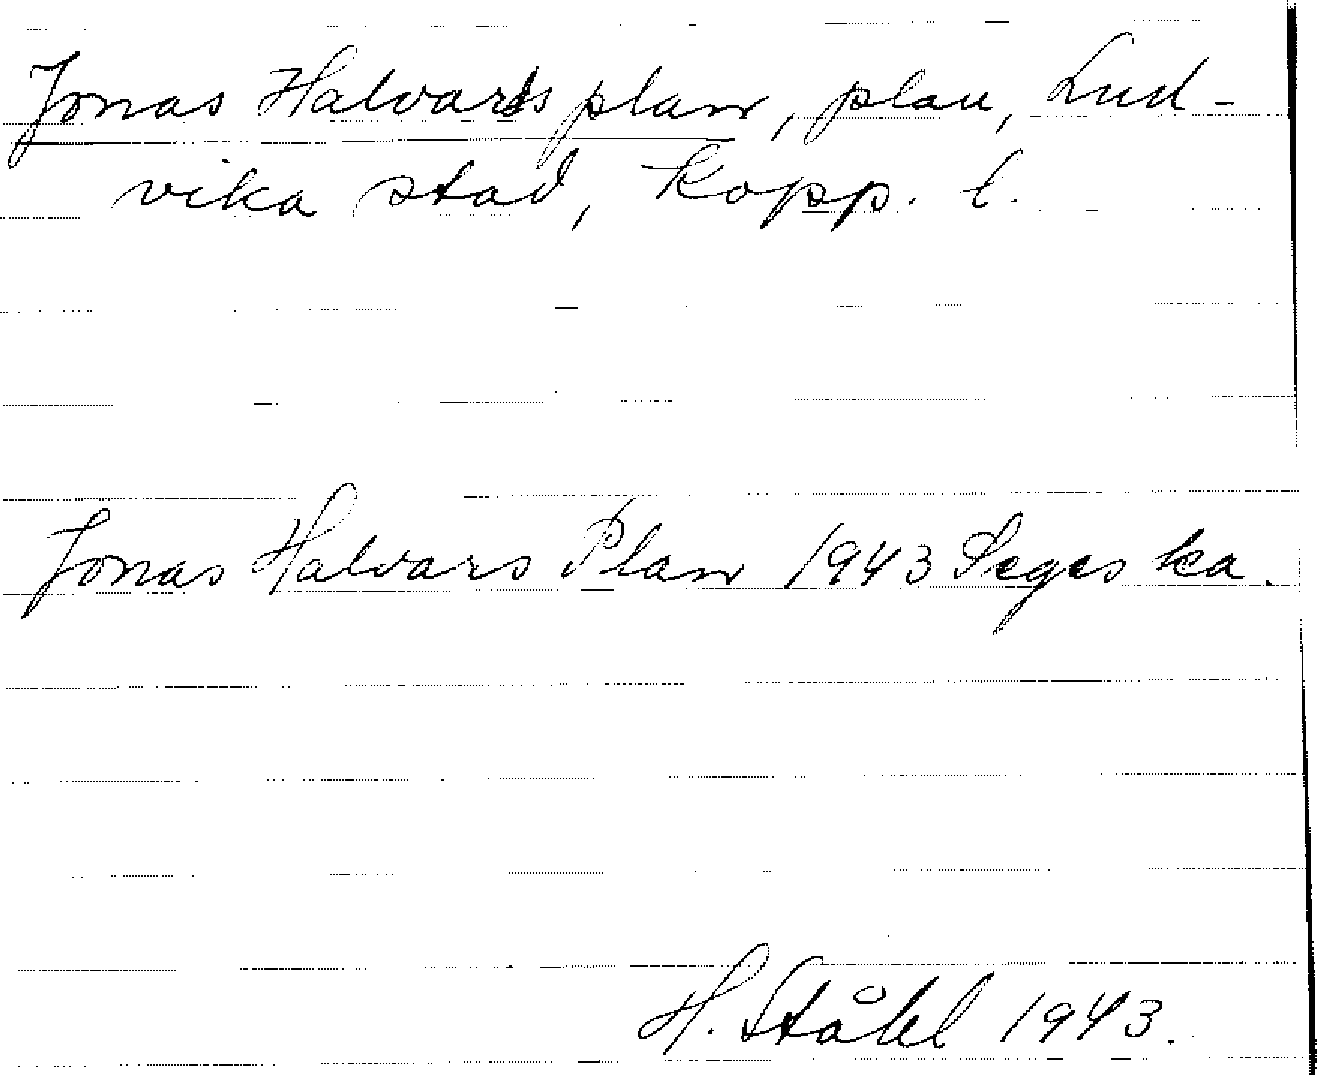 Jonas Halvards plan, plan, Lud-
vika stad, Kopp. l.
Jonas Halvars Plan 1943 Seges ka.
H. Ståhl 1943.